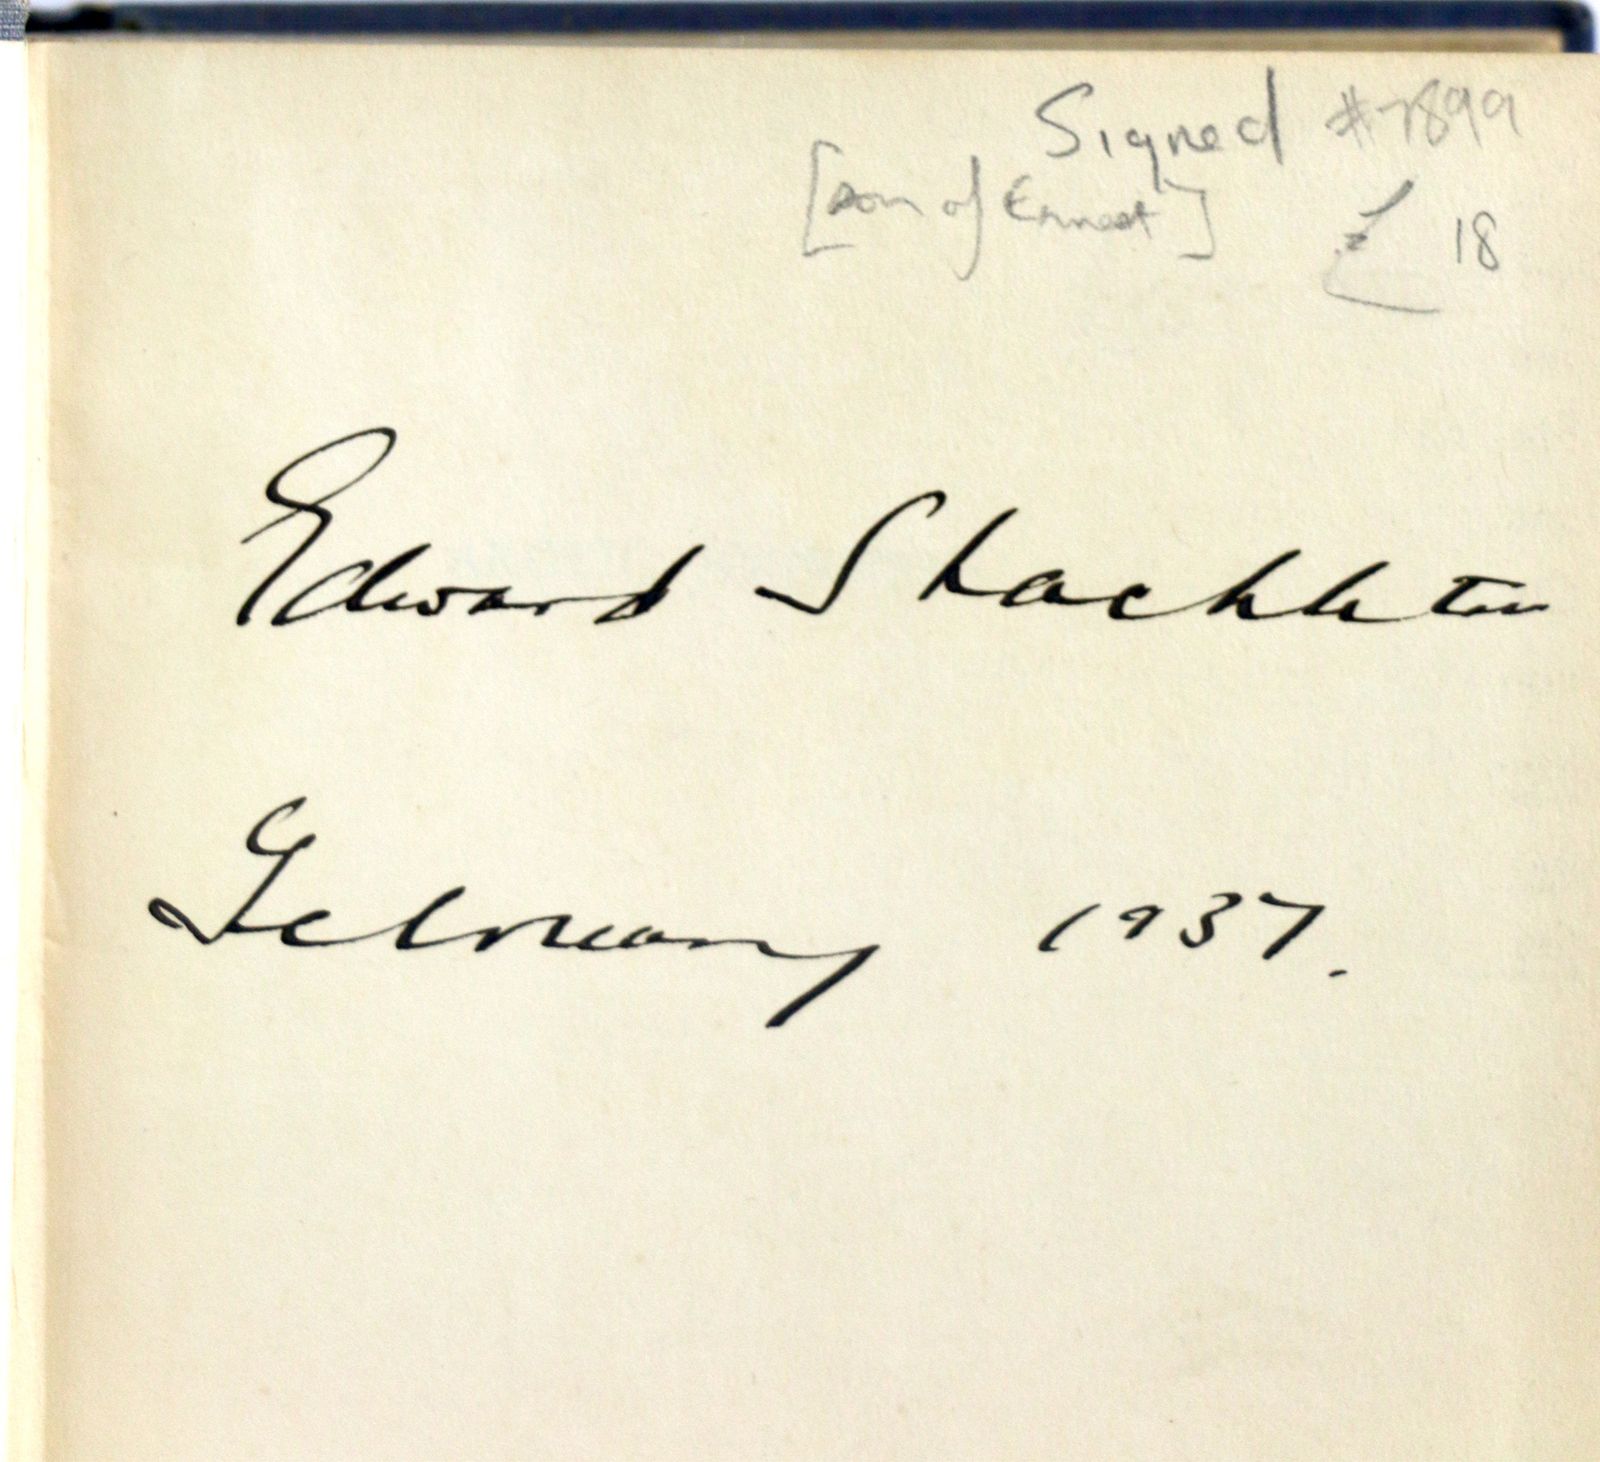 Signed #7899
[son of Ernest]
£ 18
Edward Shackleton
February 1937.